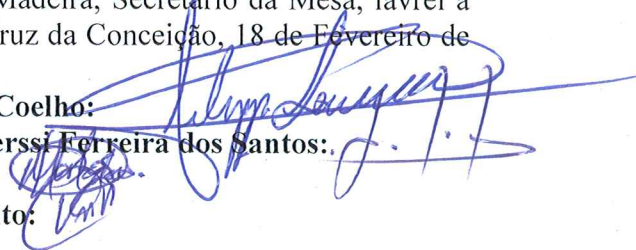 Madeira, Secretário da Mesa, lavrei a
ruz da Conceição, 18 de Fevereiro de
Coelho:
erssi Ferreira dos Santos:
to: